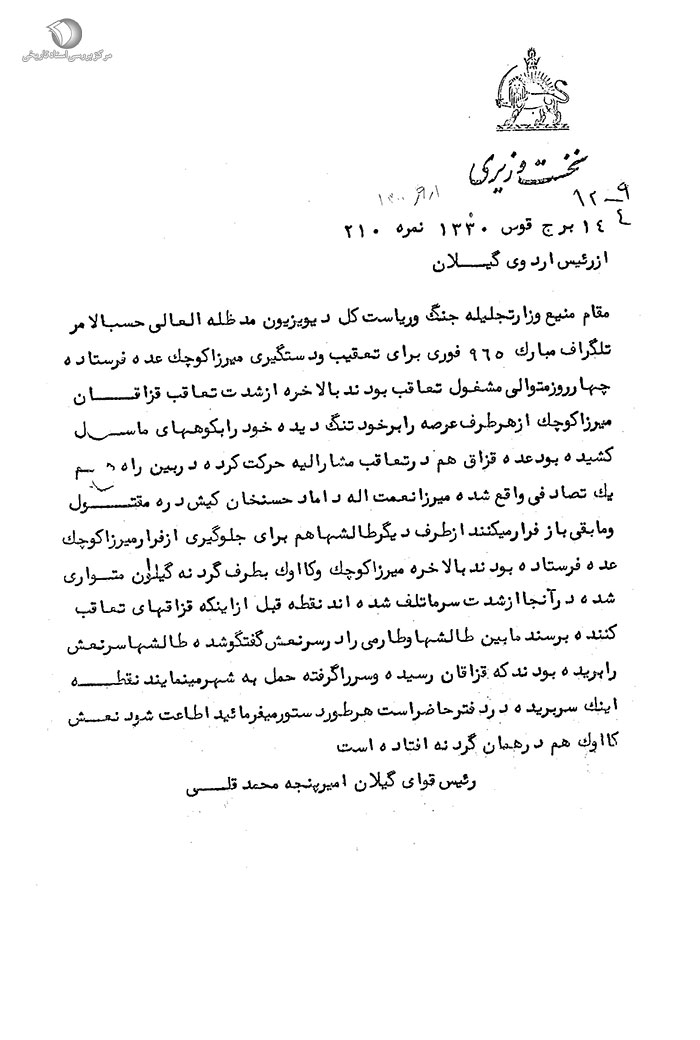 مرکز بررسی اسناد تاریخی
نخست وزیری
۹-۱۲
۴
۱۴ برج قوس ۱۳۳۰ نمره ۲۱۰
از رئیس اردوی گیلان
مقام منیع وزارتجلیله جنگ و ریاست کل دیویزیون مدظله العالی حسب الامر
تلگراف مبارک ۹۶۵ فوری برای تعقیب ودستگیری میرزاکوچک عده فرستاده
چهارروزمتوالی مشغول تعاقب بودند بالاخره ازشدت تعاقب قزاقان
میرزاکوچک ازهرطرف عرصه رابرخود تنگ دیده خود رابکوههای ماسول
کشیده بودعده قزاق هم درتعاقب مشارالیه حرکت کرده دربین راه هم
یک تصادفی واقع شده میرزانعمت اله داماد حسنخان کیش دره مقتول
ومابقی باز فرارمیکنند ازطرف دیگرطالشهاهم برای جلوگیری ازفرارمیرزاکوچک
عده فرستاده بودند بالاخره میرزاکوچک وکااوک بطرف گردنه گیلوان متواری
شده درآنجاازشدت سرماتلف شده اند نقطه قبل ازاینکه قزاقهای تعاقب
کننده برسند مابین طالشهاوطارمی رادرسرنعش گفتگوشده طالشهاسرنعش
رابریده بودند که قزاقان رسیده وسرراگرفته حمل به شهرمینمایند نقطه
اینک سربریده دردفترحاضراست هرطوردستورمیفرمائید اطاعت شود نعش
کااوک هم درهمان گردنه افتاده است
رئیس قوای گیلان امیرپنجه محمد قلی